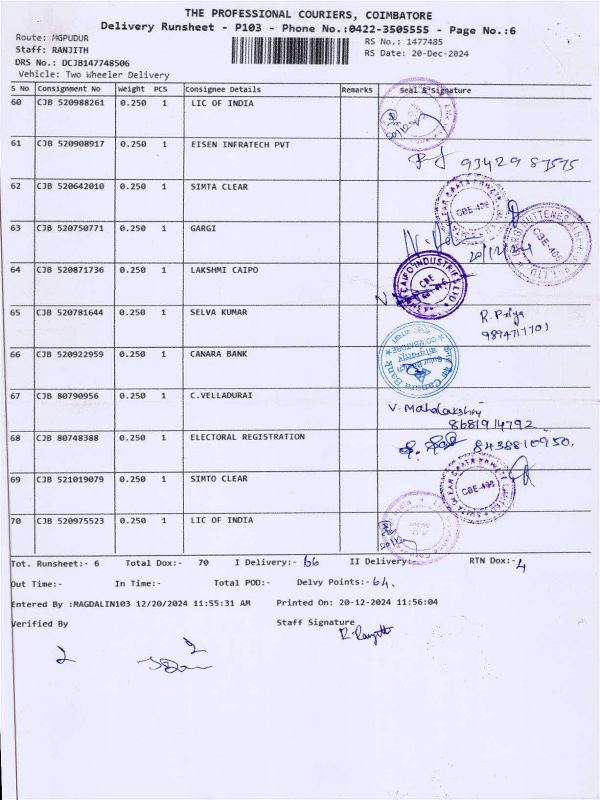 THE PROFESSIONAL COURIERS, COIMBATORE
Delivery Runsheet - P103 - Phone No.:0422-3505555 - Page No.:6
Route: MGPUDUR
RS No.: 1477485
Staff: RANJITH
RS Date: 20-Dec-2024
DRS No.: DCJB147748506
Vehicle: Two Wheeler Delivery
S No Consignment No Weight PCS Consignee Details Remarks Seal & Signature
60 CJB 520988261 0.250 1 LIC OF INDIA
61 CJB 520908917 0.250 1 EISEN INFRATECH PVT
93429 87575
62 CJB 520642010 0.250 1 SIMTA CLEAR
CBE-406
63 CJB 520750771 0.250 1 GARGI
20/12/24
64 CJB 520871736 0.250 1 LAKSHMI CAIPO
CBE
65 CJB 520781644 0.250 1 SELVA KUMAR R. Priya
9894717701
66 CJB 520922959 0.250 1 CANARA BANK
Canara Bank
67 CJB 80790956 0.250 1 C.VELLADURAI V. Mahalakshmi
8681914792
68 CJB 80748388 0.250 1 ELECTORAL REGISTRATION 8438810950.
69 CJB 521019079 0.250 1 SIMTO CLEAR
70 CJB 520975523 0.250 1 LIC OF INDIA
Tot. Runsheet:- 6 Total Dox:- 70 I Delivery:- 66 II Delivery:- RTN Dox:- 4
Out Time:- In Time:- Total POD:- Delvy Points:- 64.
Entered By :MAGDALIN103 12/20/2024 11:55:31 AM Printed On: 20-12-2024 11:56:04
Verified By Staff Signature
R. Ranjith